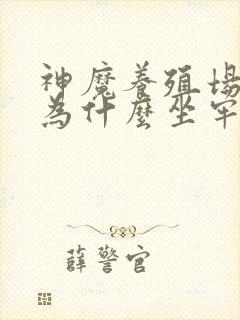 神魔養殖場
為什麼坐牢
薛警官